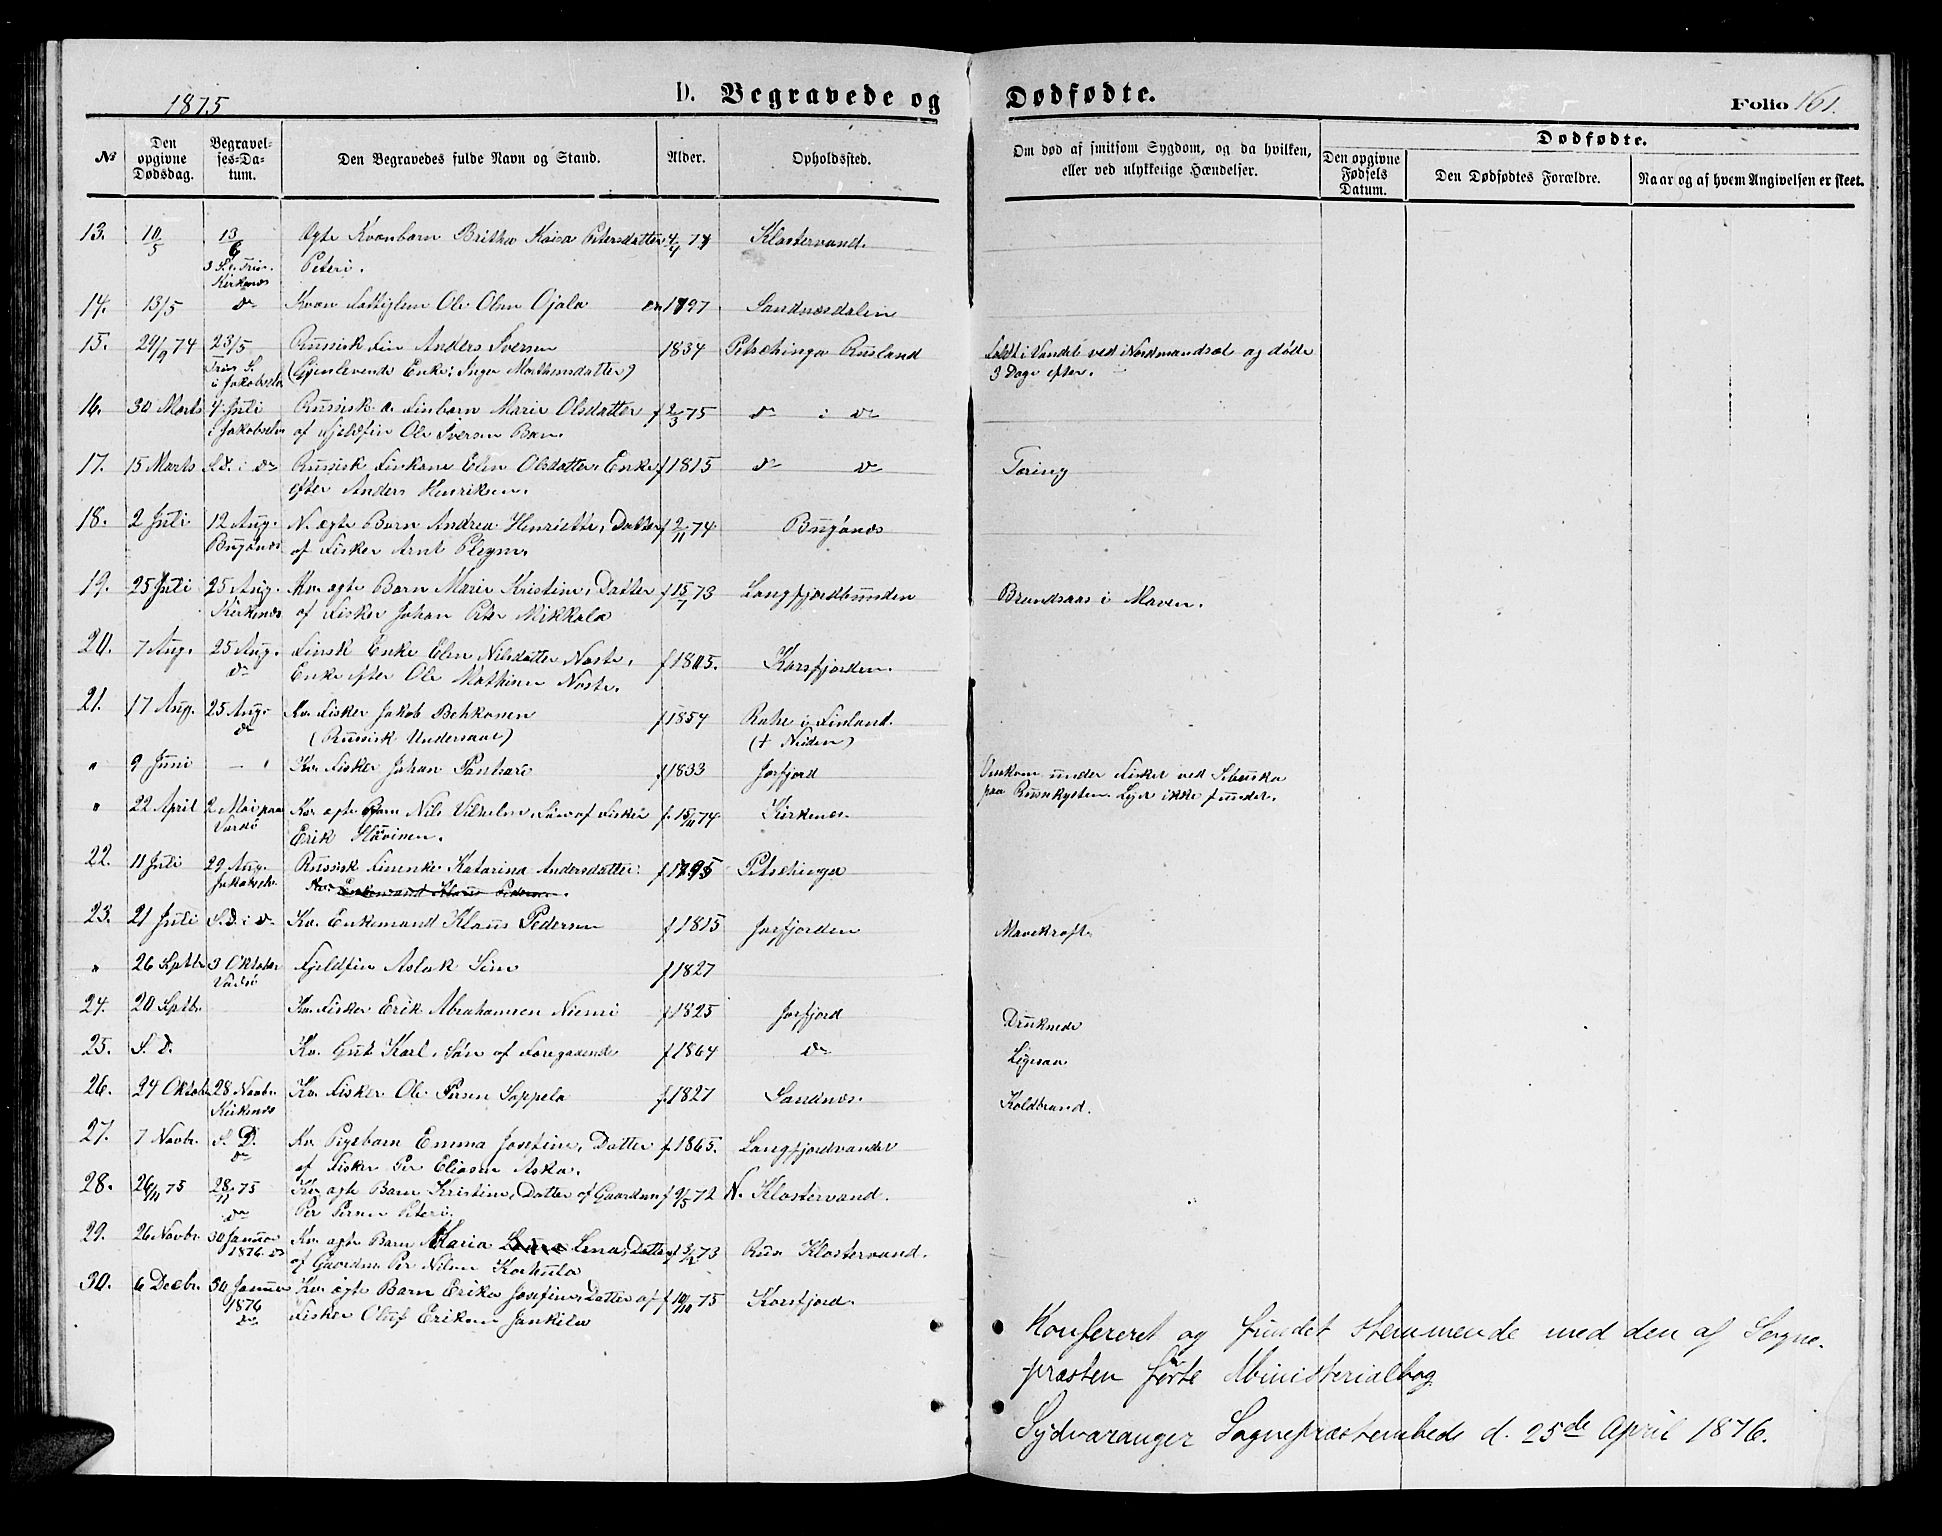 1875 D. Begravede og Dødfødte. Folio 161.
№ Den opgivne Dødsdag. Begravelses-Datum. Den Begravedes fulde Navn og Stand. Alder. Opholdssted. Om død af smitsom Sygdom, og da hvilken, eller ved ulykkelige Hændelser. Dødfødte.
Den opgivne Fødsels Datum. Den Dødfødtes Forældre. Naar og af hvem Angivelsen er skeet.
13. 10/5 13/6 Ægte Kvænbarn Britha Kaisa Petersdatter 4/4 74 Klostervand.
3 S. e. Trin. Peteri.
Kirkenæs
14. 13/5 do Kvæn Olsen Ojala 1797 Sandnæsdalen
15. 29/9 74 23/5 Russisk Fin Anders Iversen 1834 Petschinga Rusland Faldt i Vandet ved Nordmandsæt og døde
Trin S. (Gjenlevende Enke: Inger Mathisdatter) 3 Dage efter.
i Jakobselv
16. 30 Marts 4 Juli Russisk æ. Finbarn Marie Olsdatter f 2/3 75 do i do
i Jakobselv af Fjeldfin Ole Iversen
17. 15 Marts S. d. i do Russisk Finkone Elen Olsdatter, Enke f 1815 do do Tæring
efter Anders Henriksen.
18. 2 Juli 12 Aug. N. ægte Barn Andrea Henriette, Datter f 2/11 74 Bugønæs
Bugønæs af Fisker Arnt
19. 25 Juli 25 Aug. Kv. ægte Barn Marie Kristine, Datter f 15/7 73 Langfjordbunden Brandsaar i Maven.
Kirkenæs af Fisker Johan Peter Mikkala
20. 7 Aug. 25 Aug. Finsk Enke Elen Nilsdatter Noste, f 1805. Korsfjorden.
do Enke efter Ole Mathisen Noste.
21. 17 Aug. 25 Aug. Kv. Fisker Jakob Behkonen f 1854 Rahe i Finland.
do (Russisk Undersaat) (+ Neiden)
" 9 Juni — Kv. Fisker Johan f 1833 Jarfjord Omkom under Fisket ved
paa Russekysten. Liget ikke fundet.
" 22 April 2 Mai paa Kv. ægte Barn Nils Vilhelm, Søn af Fisker f. 15/11 74. Kirkenæs.
Vardø Erik
22. 11 Juli 29 Aug. Russisk Finenke Katarina Andersdatter. f 1795 Petschinga
Jakobselv. Kv. Enkemand Klaus Pedersen.
23. 21 Juli S. D. i do Kv. Enkemand Klaus Pedersen f 1815 Jarfjorden Mavekræft.
" 26 Septbr 3 Oktober Fjeldfin Aslak f 1827
Vadsø
24. 20 Septbr. Kv. Fisker Erik Abrahamsen Niemi f 1825 Jarfjord Druknede
25. S. D. Kv. Gut Karl, Søn af Foregaaende f 1864 do Ligesaa
26. 24 Oktober 28 Novbr. Kv. Fisker Ole Persen Sappela f. 1827 Sandnæs. Koldbrand.
Kirkenæs
27. 7 Novbr. S. D. Kv. Pigebarn Emma Josefine, Datter f. 1865. Langfjordvandet
do af Fisker Per Eliasen Aska.
28. 26/11 75 28/11 75 Kv. ægte Barn Kristine, Datter af Gaardm. f 9/5 72 N. Klostervand.
do Per Persen Peteri.
29. 26 Novbr. 30 Januar Kv. ægte Barn Maria Lena, Datter 73 Russ Klostervand.
1876. do af Gaardm. Per Nilsen Korkula
30. 6 Decbr. 30 Januar Kv. ægte Barn Erika Josefine, Datter af f 10/10 75 Korsfjord.
1876 Fisker Oluf Eriksen Jankila
do
Konfereret og fundet stemmende med den af Sogne-
præsten førte Ministerialbog
Sydvaranger Sognepræstembede d. 25de April 1876.